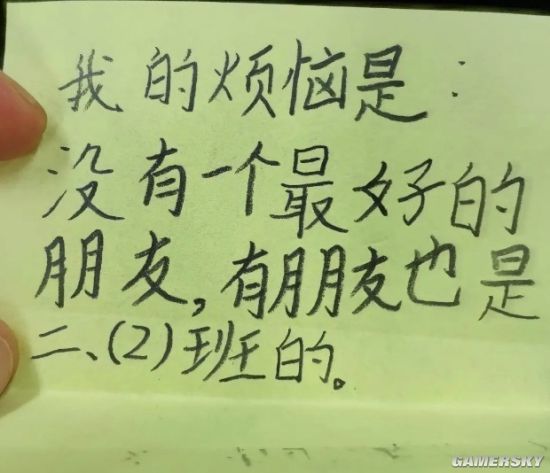 我的烦恼是:
没有一个最好的
朋友,有朋友也是
二、(2)班的。
GAMERSKY